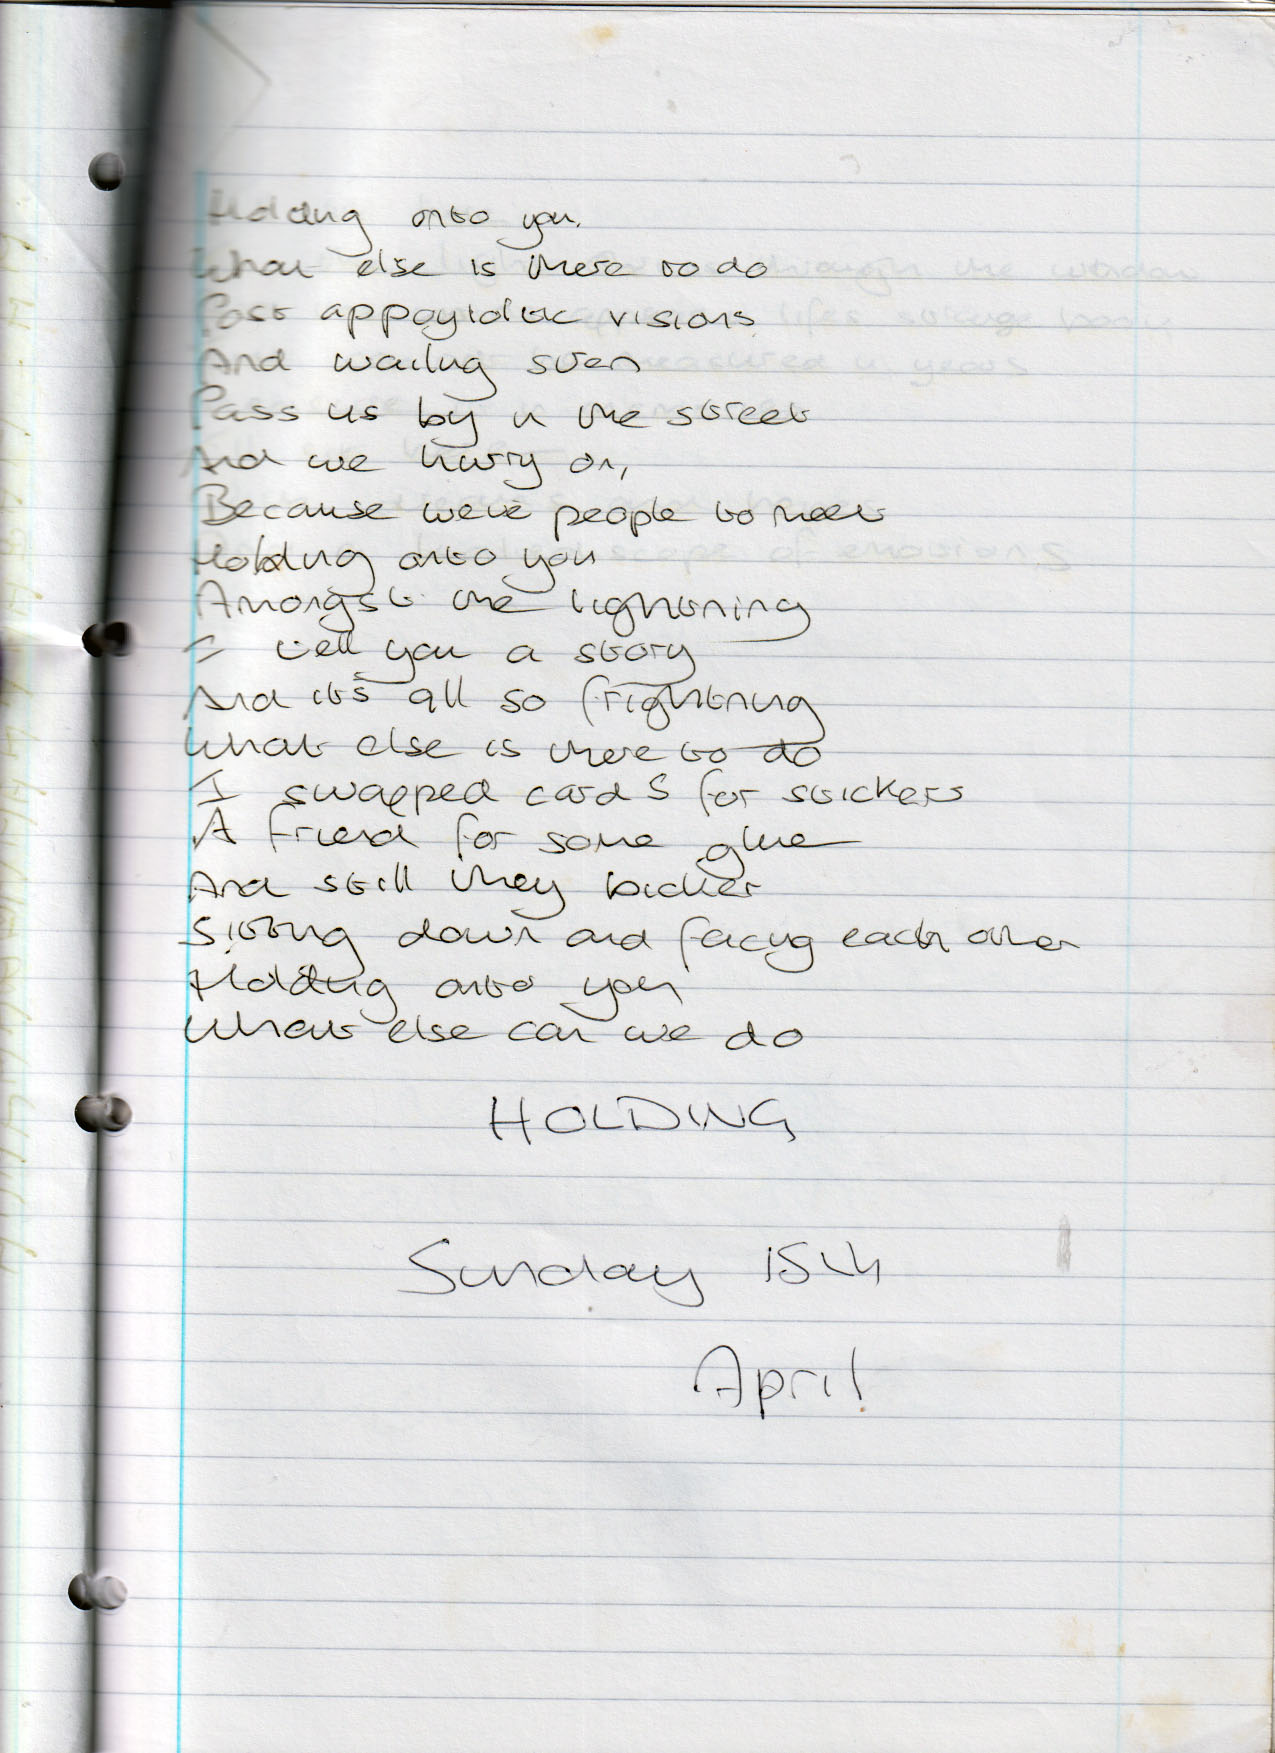 Holding onto you.
What else is there to do
Post appoyidlic visions
And wailing siren
Pass us by in the street
And we hurry on,
Because we've people to meet
Holding onto you
Amongst the lightning
I tell you a story
And its all so frightning
What else is there to do
I swapped cards for stickers
A friend for some glue
And still they bicker
Sitting down and facing each other
Holding onto you
What else can we do
HOLDING
Sunday 15th
April